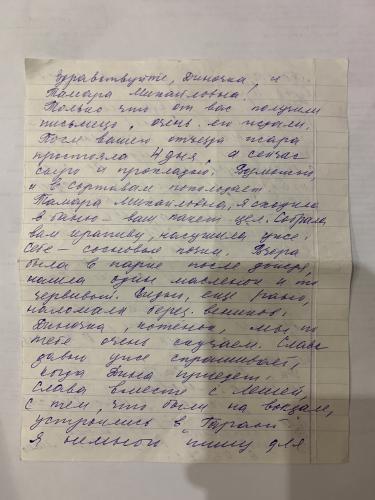 Здравствуйте, Диночка, и
Тамара Михайловна!
Только что от вас получили
письмецо, очень его ждали.
После вашего отъезда жара
простояла 4 дня, а сейчас
сыро и прохладно. Думаю,
и в Сортавале похолодает
Тамара Михайловна, я сходила
в баню – ваш пакет цел. Собрала
вам крапиву, насушила уже.
Себе – сосновые почки. Вчера
была в парке после дождя,
нашла один масленок и то
червивый. Видно, еще рано,
наломали берез. веников.
Диночка, котенок, мы по
тебе очень скучаем. Слава
давно уже спрашивает,
когда Дина приедет.
Слава вместе с Лешей,
с тем, что были на вокзале,
устроились в
Я немного пишу для